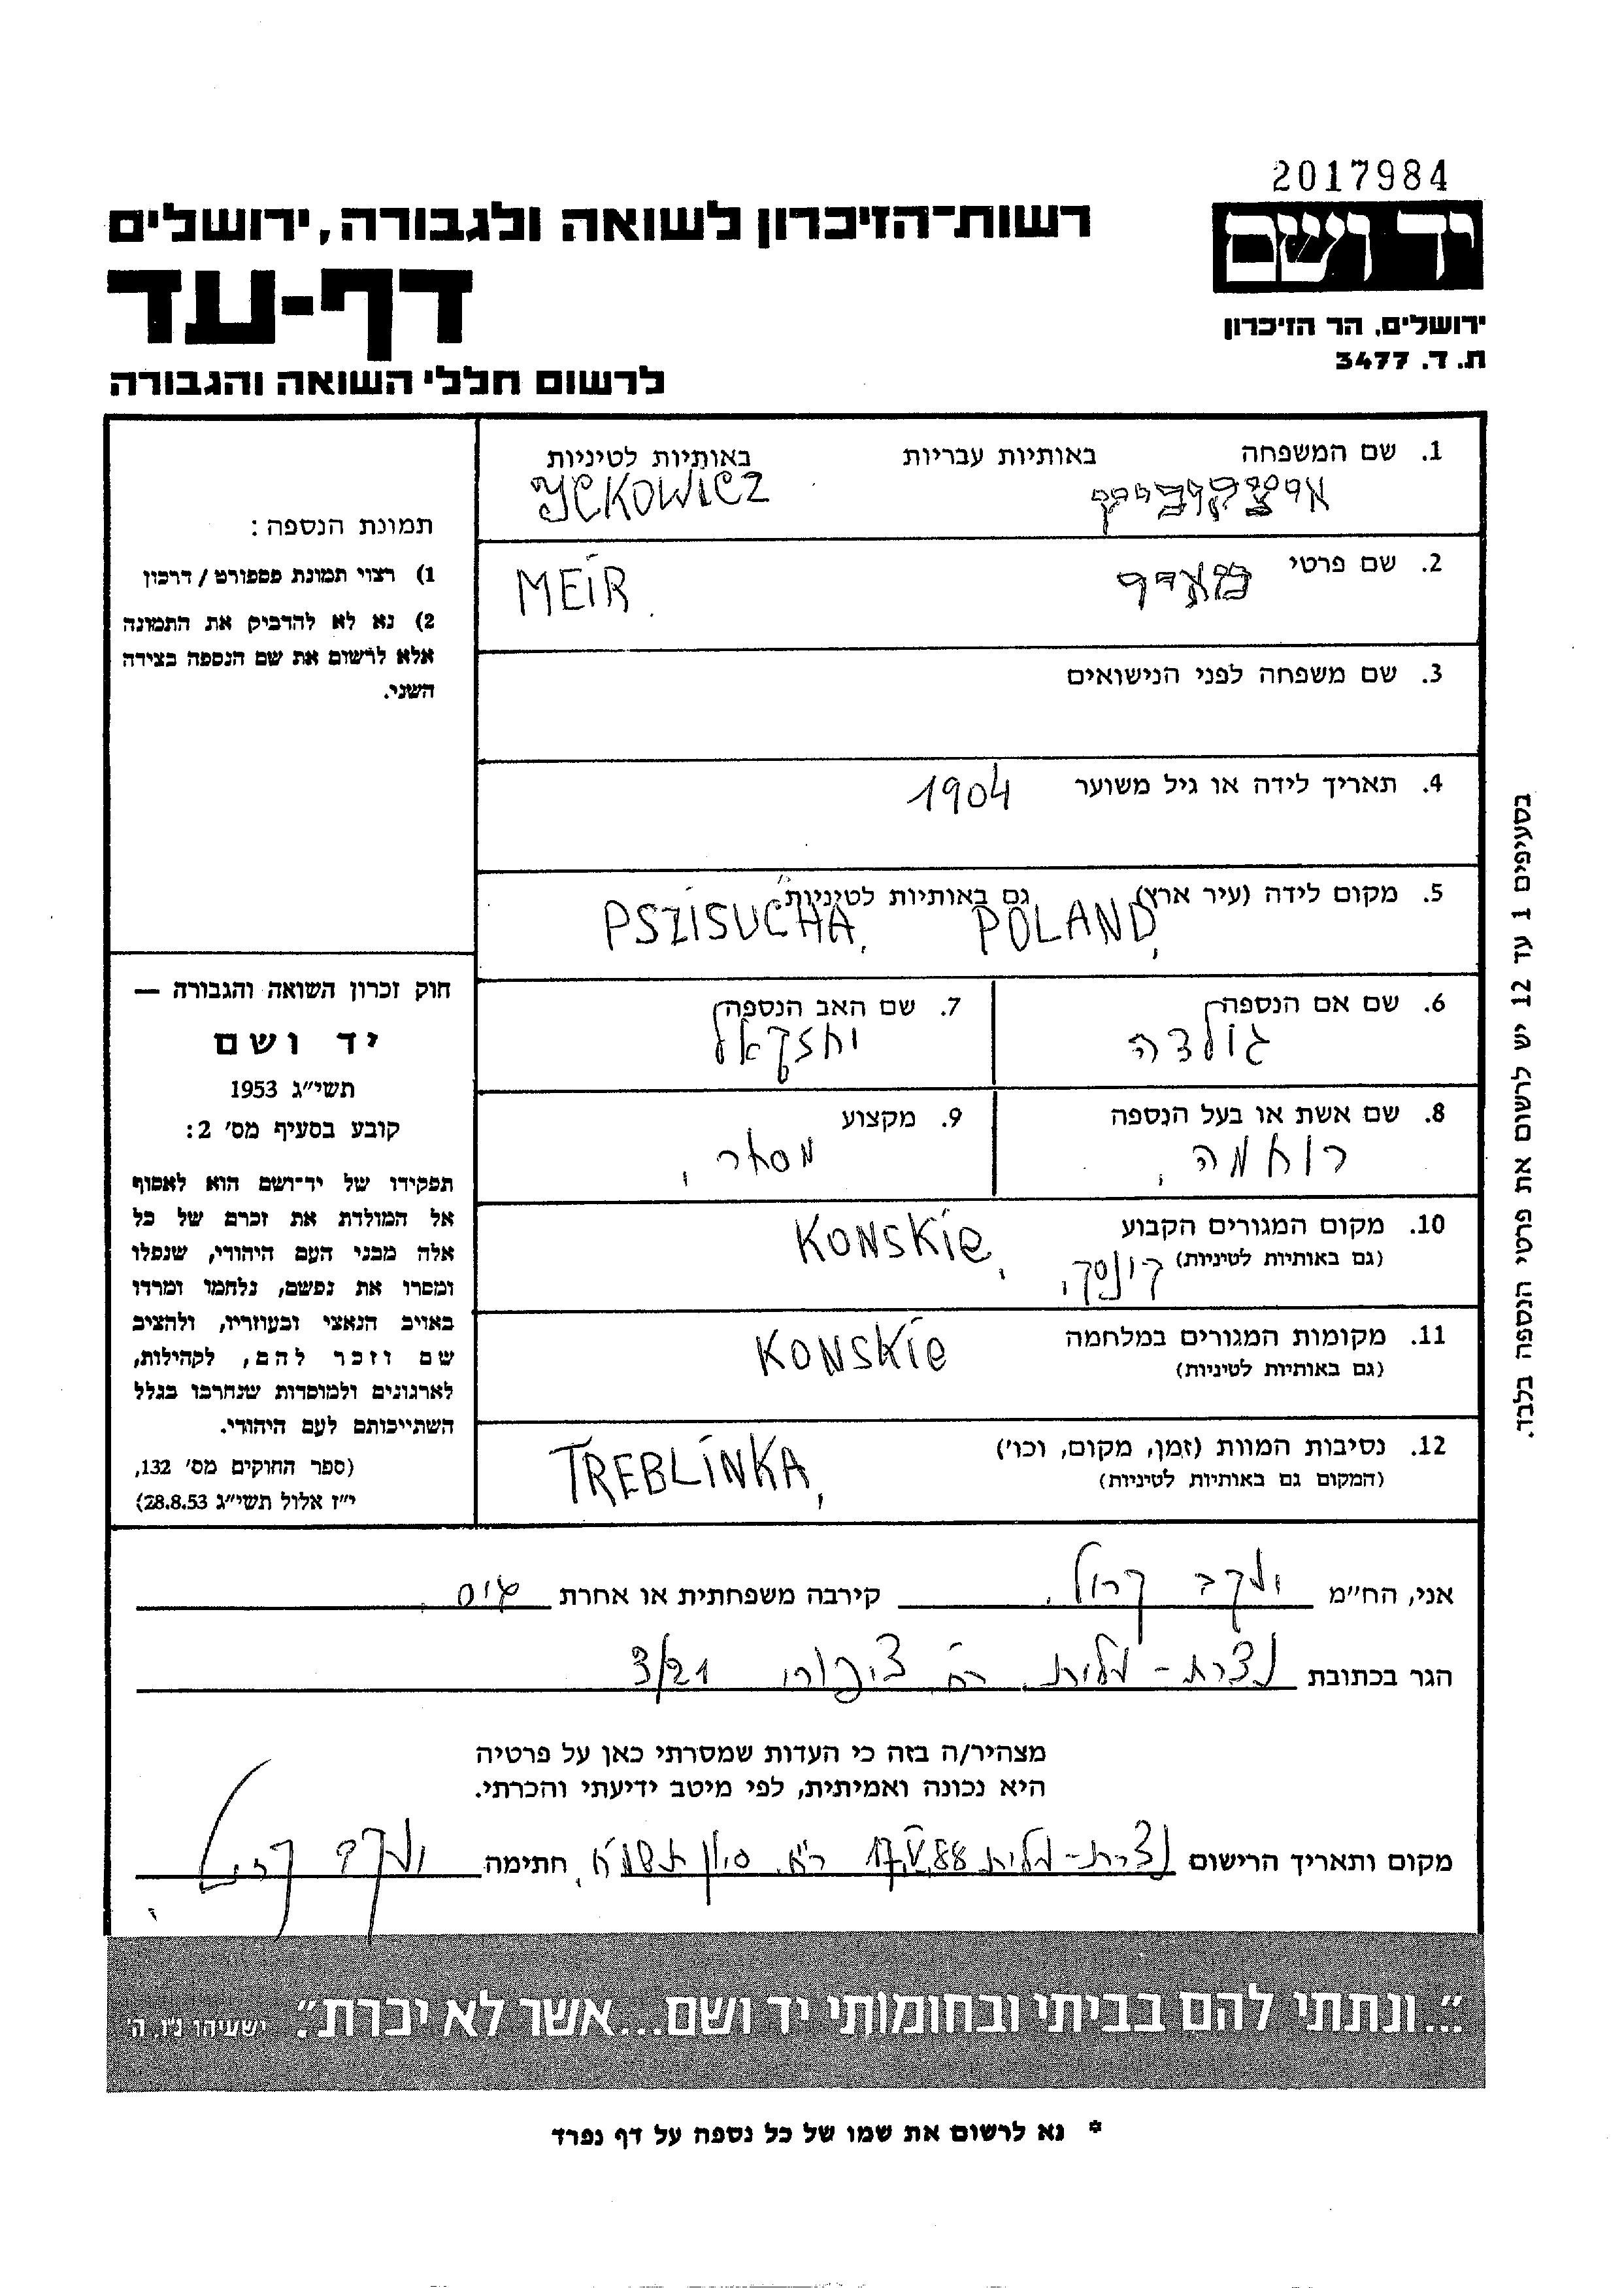 2017984
יד ושם
ירושלים, הר הזיכרון
ת. ד. 3477
רשות־הזיכרון לשואה ולגבורה, ירושלים
דף-עד
לרשום חללי השואה והגבורה
1. שם המשפחה באותיות עבריות באותיות לטיניות
איצקוביץ YCKOWICZ
2. שם פרטי מאיר MEIR
3. שם משפחה לפני הנישואים
4. תאריך לידה או גיל משוער 1904
5. מקום לידה (עיר ארץ) גם באותיות לטיניות
PSZISUCHA, POLAND,
6. שם אם הנספה 7. שם האב הנספה
גולדה יחזקאל
8. שם אשת או בעל הנספה 9. מקצוע
10. מקום המגורים הקבוע KONSKIE,
(גם באותיות לטיניות)
11. מקומות המגורים במלחמה KONSKIE
(גם באותיות לטיניות)
12. נסיבות המוות (זמן, מקום, וכו') TREBLINKA,
(המקום גם באותיות לטיניות)
תמונת הנספה:
1) רצוי תמונת פספורט/דרכון
2) נא לא להדביק את התמונה
אלא לרשום את שם הנספה בצידה
השני.
חוק זכרון השואה והגבורה —
יד ושם
תשי״ג 1953
קובע בסעיף מס׳ 2:
תפקידו של יד־ושם הוא לאסוף
אל המולדת את זכרם של כל
אלה מבני העם היהודי, שנפלו
ומסרו את נפשם, נלחמו ומרדו
באויב הנאצי ובעוזריו, ולהציב
שם וזכר להם, לקהילות,
לארגונים ולמוסדות שנחרבו בגלל
השתייכותם לעם היהודי.
(ספר החוקים מס׳ 132,
י״ז אלול תשי״ג 28.8.53)
בסעיפים 1 עד 12 יש לרשום את פרטי הנספה בלבד.
אני, הח״מ יעקב קרול, קירבה משפחתית או אחרת גיס.
הגר בכתובת נצרת-עלית, רח׳ ציפורן 3/21
מצהיר/ה בזה כי העדות שמסרתי כאן על פרטיה
היא נכונה ואמיתית, לפי מיטב ידיעתי והכרתי.
מקום ותאריך הרישום נצרת-עלית 17.V.88 חתימה יעקב קרול
״...ונתתי להם בביתי ובחומותי יד ושם...אשר לא יכרת״. ישעיהו נ״ו, ה׳
* נא לרשום את שמו של כל נספה על דף נפרד